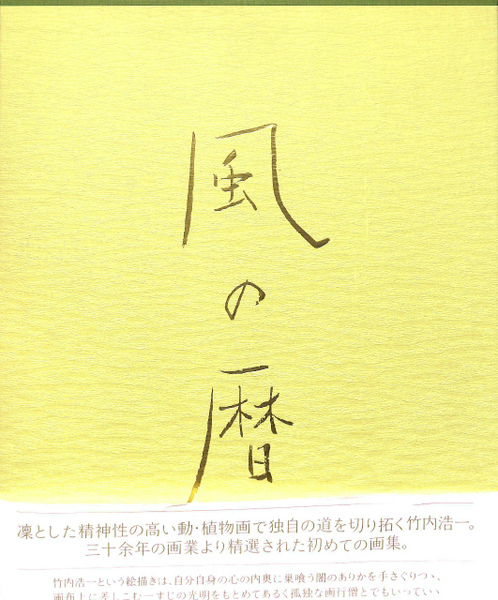 風の暦
凜とした精神性の高い動・植物画で独自の道を切り拓く竹内浩一。
三十余年の画業より精選された初めての画集。
竹内浩一という絵描きは、自分自身の心の内奥に巣喰う闇のありかを手さぐりつゝ、
画布上に差しこむ一すじの光明をもとめてあるく孤独な画行僧とでもいっていい、